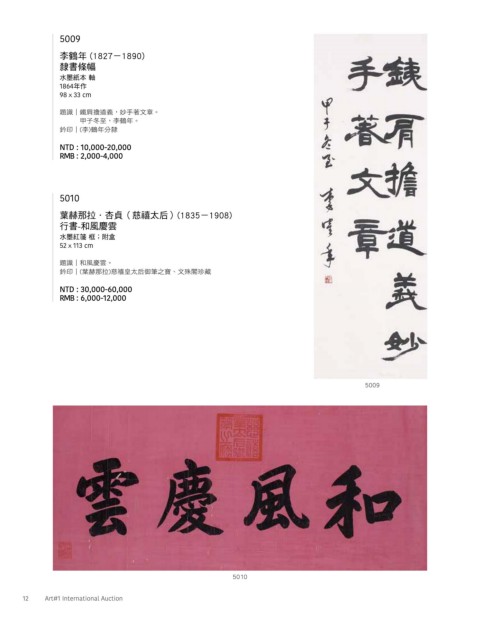 5009
李鶴年 (1827－1890)
隸書條幅
水墨紙本 軸
1864年作
98 x 33 cm
題識｜鐵肩擔道義，妙手著文章。
甲子冬至、李鶴年。
鈐印｜(李)鶴年分隸
NTD : 10,000-20,000
RMB : 2,000-4,000
5010
葉赫那拉．杏貞（慈禧太后）(1835－1908)
行書-和風慶雲
水墨紅箋 框；附盒
52 x 113 cm
題識｜和風慶雲。
鈐印｜(葉赫那拉)慈禧皇太后御筆之寶、文殊閣珍藏
NTD : 30,000-60,000
RMB : 6,000-12,000
鐵肩擔道義妙
手著文章
甲子冬至 李鶴年
5009
和風慶雲
5010
12 Art#1 International Auction